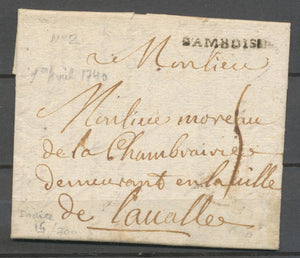 N°2
DAMBOISE
A Monsieur
1er Avril 1740
Monsieur moreau
de la Chambraisiere
demeurant en la ville
de Lavalle
Indice
15